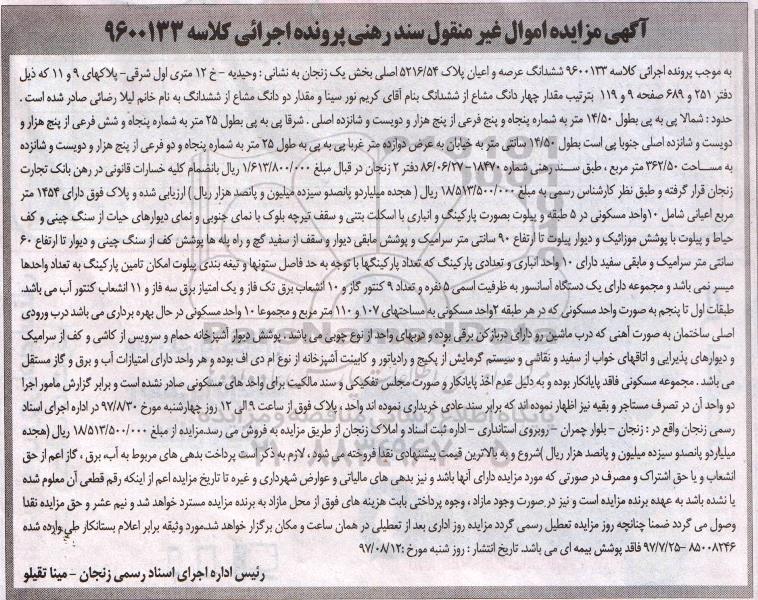 آگهی مزایده اموال غیر منقول سند رهنی پرونده اجرائی کلاسه ۹۶۰۰۱۳۳
به موجب پرونده اجرائی کلاسه ۹۶۰۰۱۳۳ ششدانگ عرصه و اعیان پلاک ۵۲۱۶/۵۴ اصلی بخش یک زنجان به نشانی : وحیدیه - خ ۱۲ متری اول شرقی- پلاکهای ۹ و ۱۱ که ذیل
دفتر ۲۵۱ و ۶۸۹ صفحه ۹ و ۱۱۹ بترتیب مقدار چهار دانگ مشاع از ششدانگ بنام آقای کریم نور سینا و مقدار دو دانگ مشاع از ششدانگ به نام خانم لیلا رضائی صادر شده است .
حدود : شمالا پی به پی بطول ۱۴/۵۰ متر به شماره پنجاه و پنج فرعی از پنج هزار و دویست و شانزده اصلی . شرقا پی به پی بطول ۲۵ متر به شماره پنجاه و شش فرعی از پنج هزار و
دویست و شانزده اصلی جنوبا پی است بطول ۱۴/۵۰ سانتی متر به خیابان به عرض دوازده متر غربا پی به پی به طول ۲۵ متر به شماره پنجاه و دو فرعی از پنج هزار و دویست و شانزده
به مساحت ۳۶۲/۵۰ متر مربع ، طبق سند رهنی شماره ۱۸۴۷۰-۸۶/۰۶/۲۷ دفتر ۲ زنجان در قبال مبلغ ۱/۶۱۳/۸۰۰/۰۰۰ ریال بانضمام کلیه خسارات قانونی در رهن بانک تجارت
زنجان قرار گرفته و طبق نظر کارشناس رسمی به مبلغ ۱۸/۵۱۳/۵۰۰/۰۰۰ ریال ( هجده میلیاردو پانصدو سیزده میلیون و پانصد هزار ریال ) ارزیابی شده و پلاک فوق دارای ۱۴۵۴ متر
مربع اعیانی شامل ۱۰واحد مسکونی در ۵ طبقه و پیلوت بصورت پارکینگ و انباری با اسکلت بتنی و سقف تیرچه بلوک با نمای جنوبی و نمای دیوارهای حیات از سنگ چینی و کف
حیاط و پیلوت با پوشش موزائیک و دیوار پیلوت تا ارتفاع ۹۰ سانتی متر سرامیک و پوشش مابقی دیوار و سقف از سفید گچ و راه پله ها پوشش کف از سنگ چینی و دیوار تا ارتفاع ۶۰
سانتی متر سرامیک و مابقی سفید دارای ۱۰ واحد انباری و تعدادی پارکینگ که تعداد پارکینگها با توجه به حد فاصل ستونها و تیغه بندی پیلوت امکان تامین پارکینگ به تعداد واحدها
میسر نمی باشد و مجموعه دارای یک دستگاه آسانسور به ظرفیت اسمی ۵ نفره و تعداد ۹ کنتور گاز و ۱۰ انشعاب برق تک فاز و یک امتیاز برق سه فاز و ۱۱ انشعاب کنتور آب می باشد.
طبقات اول تا پنجم به صورت واحد مسکونی که در هر طبقه ۲واحد مسکونی به مساحتهای ۱۰۷ و ۱۱۰ متر مربع و مجموعا ۱۰ واحد مسکونی در حال بهره برداری می باشد درب ورودی
اصلی ساختمان به صورت آهنی که درب ماشین رو دارای دربازکن برقی بوده و دربهای واحد از نوع چوبی می باشد . پوشش دیوار آشپزخانه حمام و سرویس از کاشی و کف از سرامیک
و دیوارهای پذیرایی و اتاقهای خواب از سفید و نقاشی و سیستم گرمایش از پکیج و رادیاتور و کابینت آشپزخانه از نوع ام دی اف بوده و هر واحد دارای امتیازات آب و برق و گاز مستقل
می باشد . مجموعه مسکونی فاقد پایانکار بوده و به دلیل عدم اخذ پایانکار و صورت مجلس تفکیکی و سند مالکیت برای واحد های مسکونی صادر نشده است و برابر گزارش مامور اجرا
دو واحد آن در تصرف مستاجر و بقیه نیز اظهار نموده اند که برابر سند عادی خریداری نموده اند واحد ، پلاک فوق از ساعت ۹ الی ۱۲ روز چهارشنبه مورخ ۹۷/۸/۳۰ در اداره اجرای اسناد
رسمی زنجان واقع در : زنجان - بلوار چمران - روبروی استانداری - اداره ثبت اسناد و املاک زنجان از طریق مزایده به فروش می رسد.مزایده از مبلغ ۱۸/۵۱۳/۵۰۰/۰۰۰ ریال (هجده
میلیاردو پانصدو سیزده میلیون و پانصد هزار ریال )شروع و به بالاترین قیمت پیشنهادی نقدا فروخته می شود ، لازم به ذکر است پرداخت بدهی های مربوط به آب، برق ، گاز اعم از حق
انشعاب و یا حق اشتراک و مصرف در صورتی که مورد مزایده دارای آنها باشد و نیز بدهی های مالیاتی و عوارض شهرداری و غیره تا تاریخ مزایده اعم از اینکه رقم قطعی آن معلوم شده
یا نشده باشد به عهده برنده مزایده است و نیز در صورت وجود مازاد ، وجوه پرداختی بابت هزینه های فوق از محل مازاد به برنده مزایده مسترد خواهد شد و نیم عشر و حق مزایده نقدا
وصول می گردد ضمنا چنانچه روز مزایده تعطیل رسمی گردد مزایده روز اداری بعد از تعطیلی در همان ساعت و مکان برگزار خواهد شد.مورد وثیقه برابر اعلام بستانکار طی وارده شده
۸۵۰۰۸۲۴۶ -۹۷/۷/۲۵ فاقد پوشش بیمه ای می باشد. تاریخ انتشار : روز شنبه مورخ :۹۷/۰۸/۱۲
رئیس اداره اجرای اسناد رسمی زنجان - مینا تقیلو